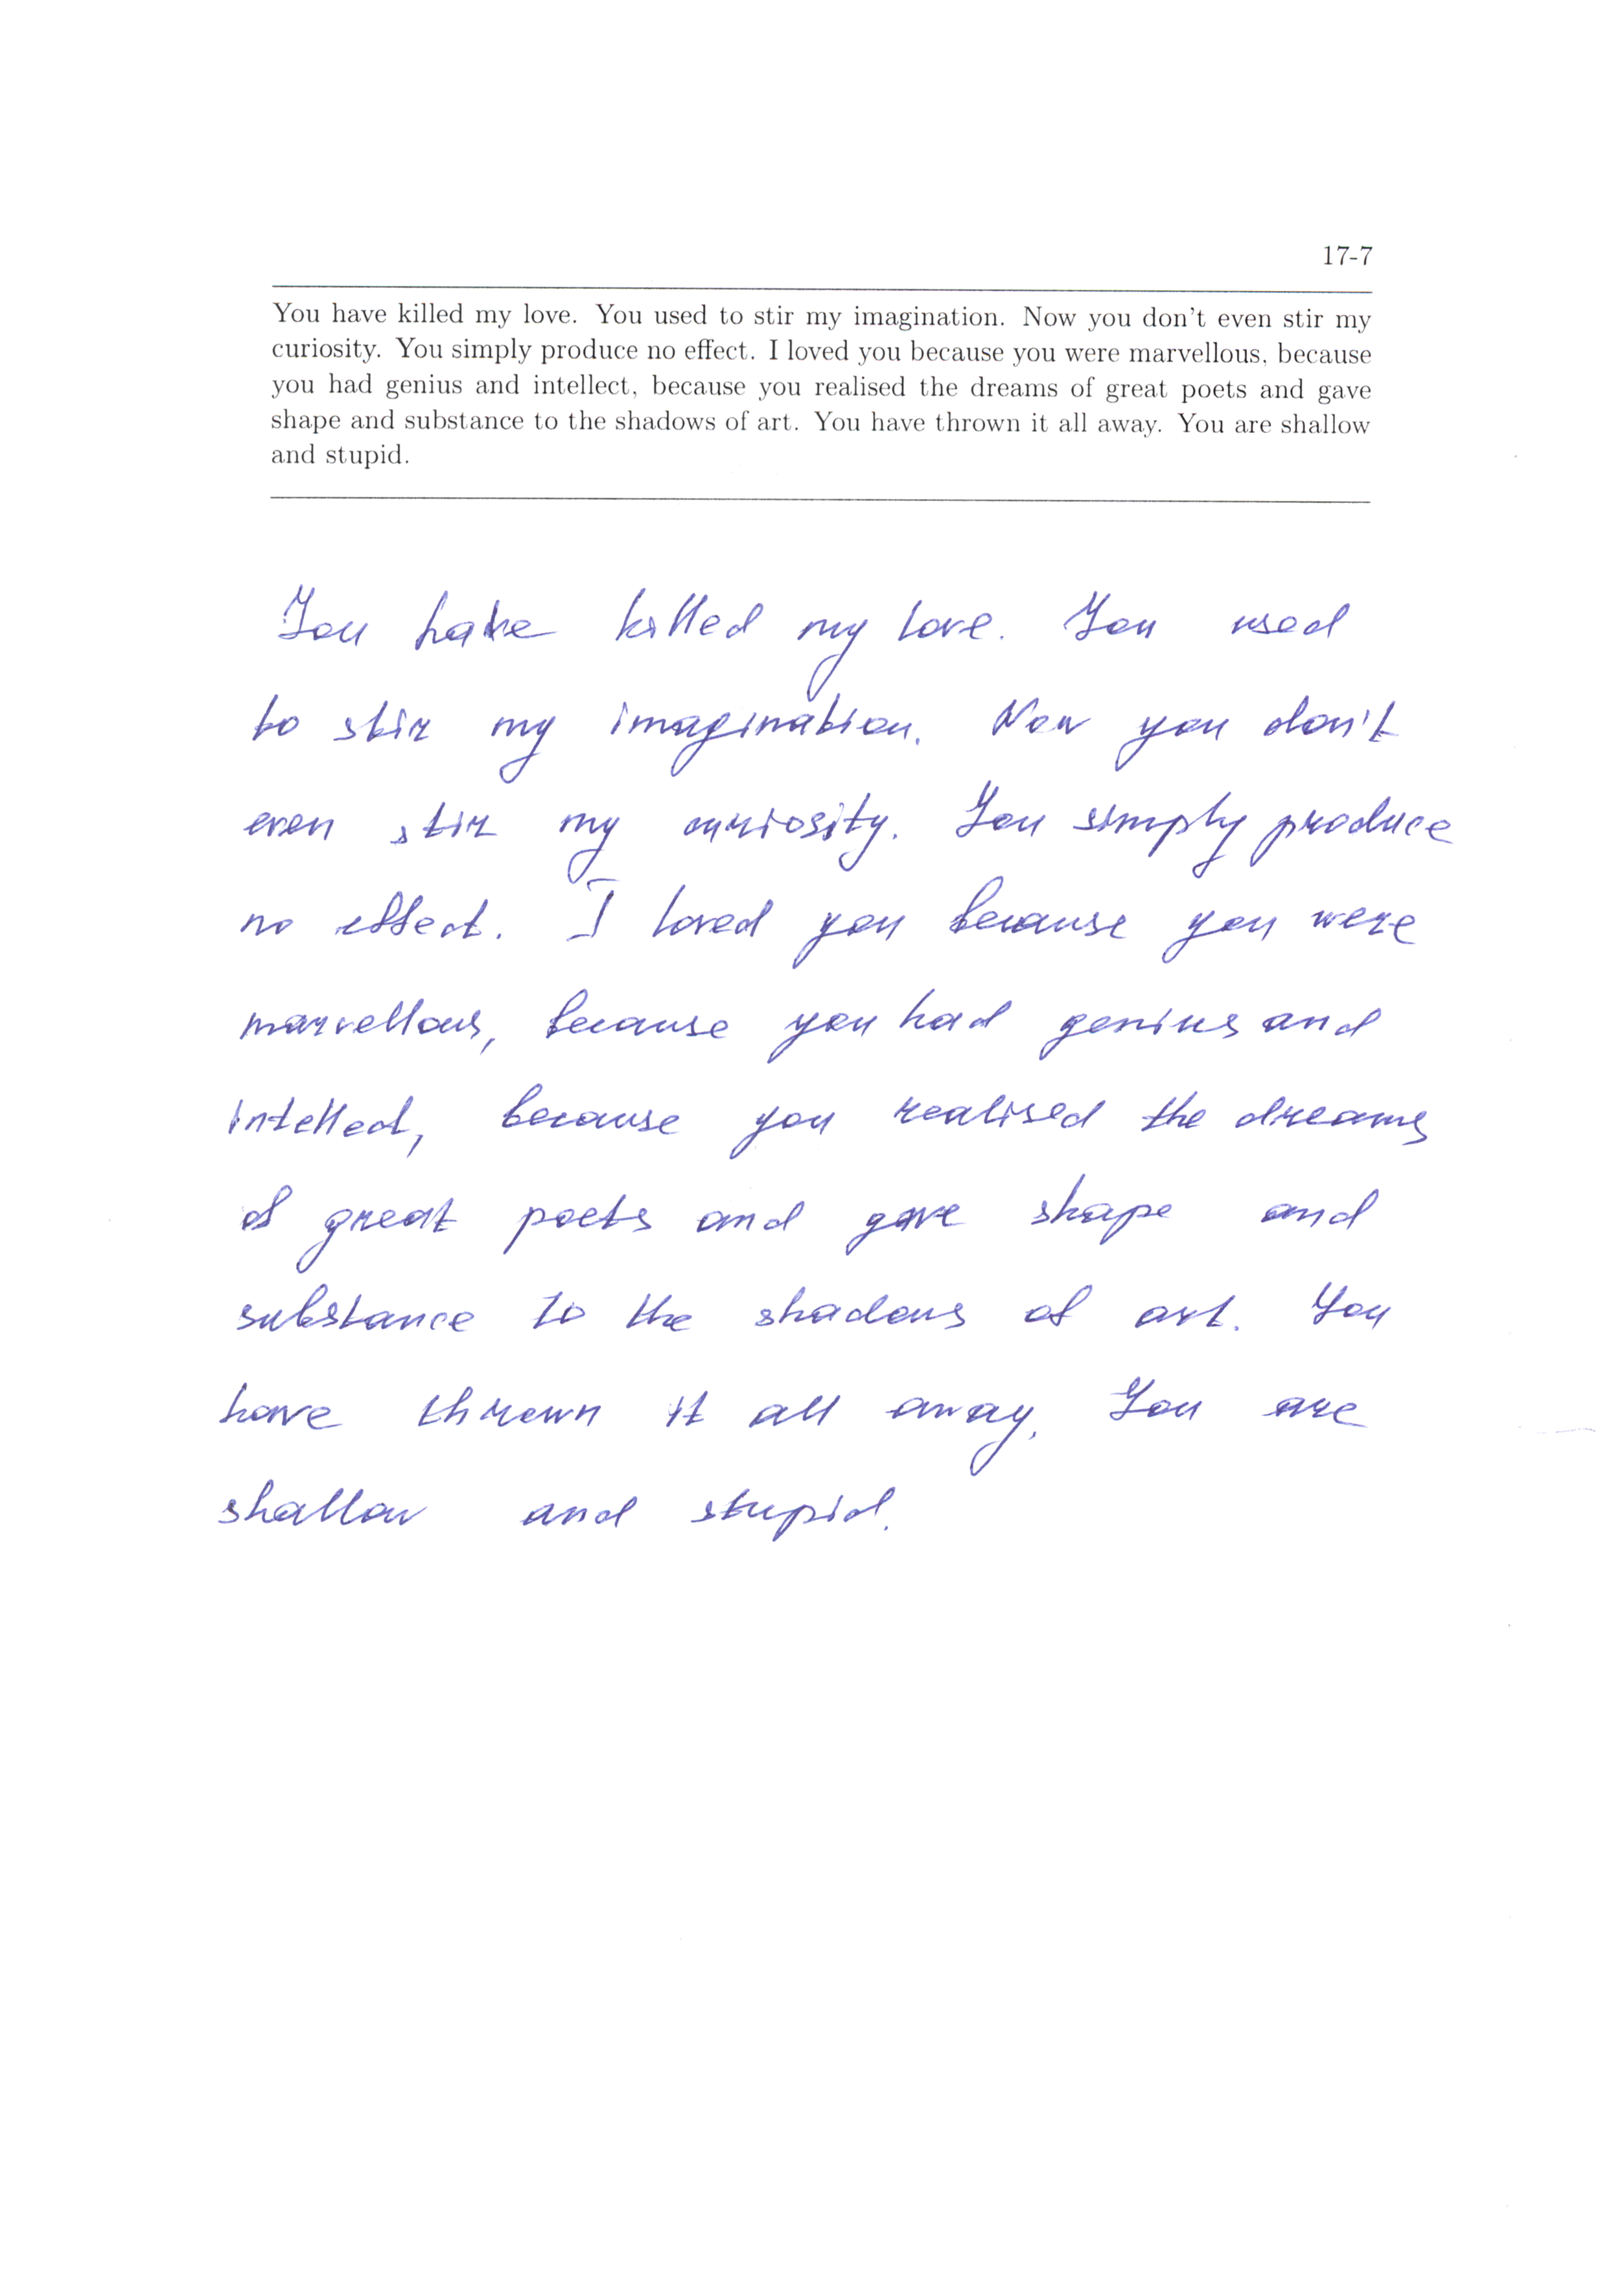 17-7
You have killed my love. You used to stir my imagination. Now you don't even stir my
curiosity. You simply produce no effect. I loved you because you were marvellous, because
you had genius and intellect, because you realised the dreams of great poets and gave
shape and substance to the shadows of art. You have thrown it all away. You are shallow
and stupid.
You have killed my love. You used
to stir my imagination. Now you don't
even stir my curiosity. You simply produce
no effect. I loved you because you were
marvellous, because you had genius and
intellect, because you realised the dreams
of great poets and gave shape and
substance to the shadows of art. You
have thrown it all away. You are
shallow and stupid.